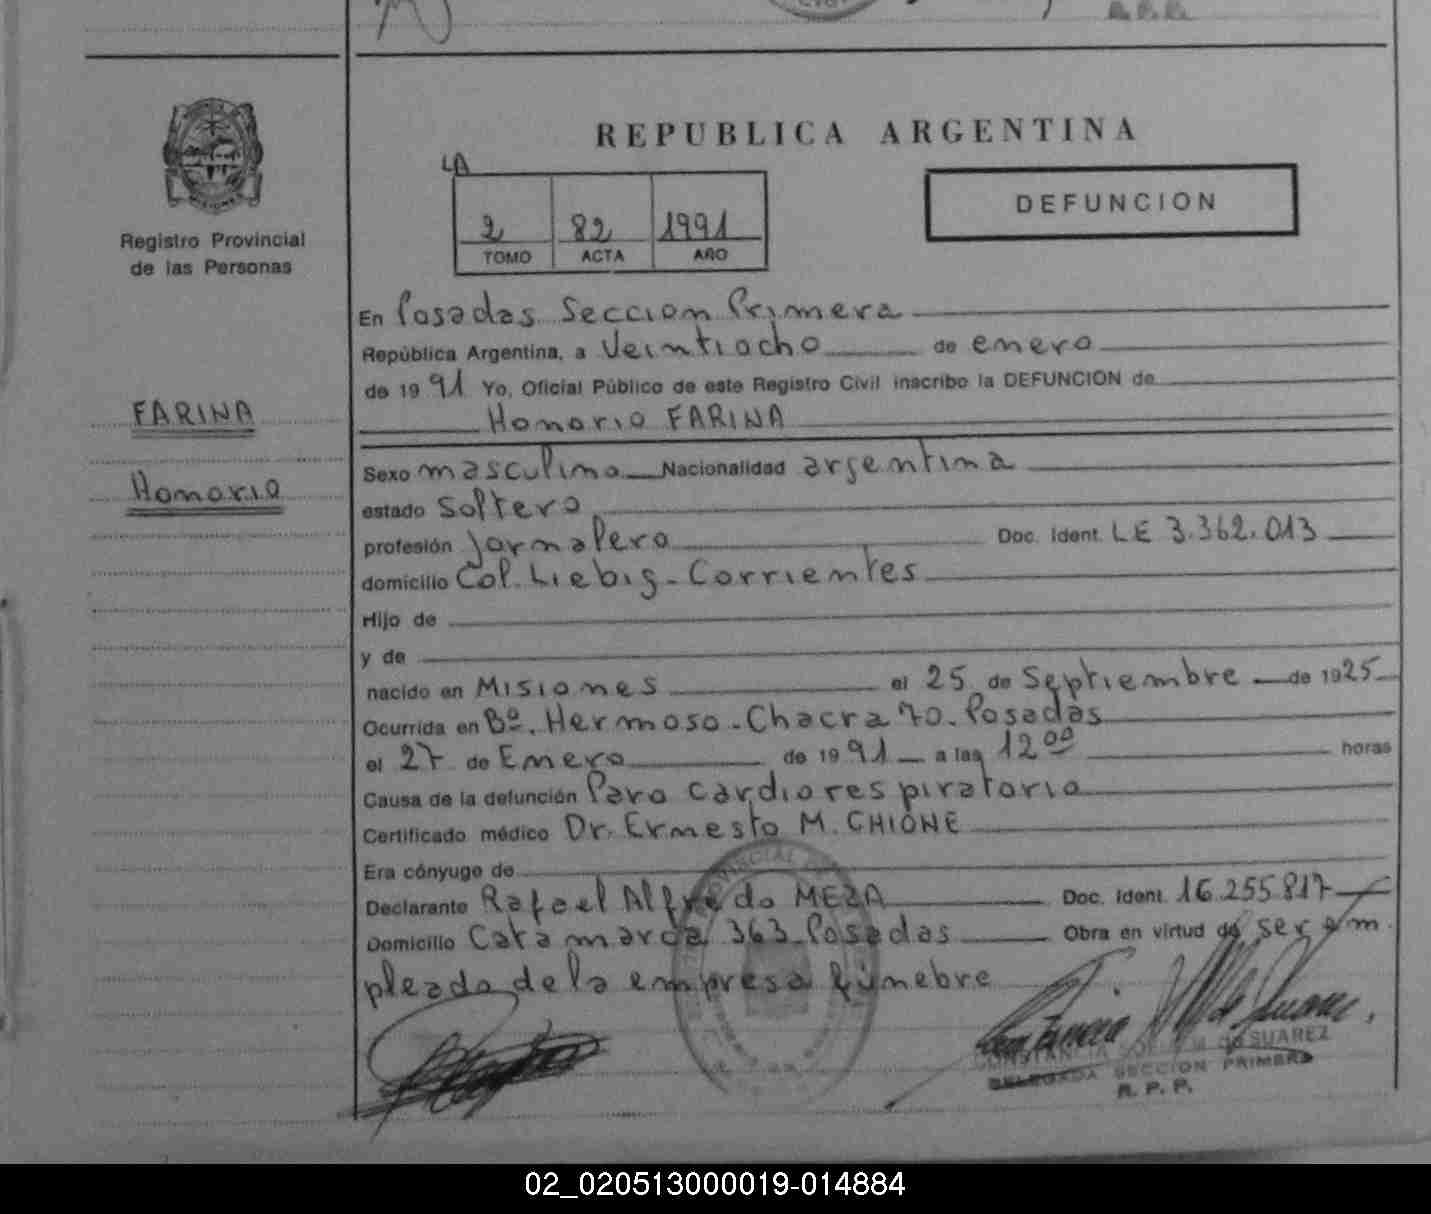 REPUBLICA ARGENTINA
LA
2 82 1991
TOMO ACTA AÑO
DEFUNCION
MISIONES
Registro Provincial
de las Personas
FARINA
Honorio
En Posadas Seccion Primera
República Argentina, a Veintiocho de enero
de 1991 Yo, Oficial Público de este Registro Civil inscribo la DEFUNCION de
Honorio FARINA
Sexo masculino Nacionalidad argentina
estado Soltero
profesión Jornalero Doc. Ident. LE 3.362.013
domicilio Col. Liebig - Corrientes
Hijo de
y de
nacido en Misiones el 25 de Septiembre de 1925
Ocurrida en Bº. Hermoso - Chacra 70 - Posadas
el 27 de Enero de 1991 a las 12 00 horas
Causa de la defunción Paro cardiorespiratorio
Certificado médico Dr. Ernesto M. CHIONE
Era cónyuge de
Declarante Rafael Alfredo MEZA Doc. Ident. 16.255.817
Domicilio Catamarca 363 Posadas Obra en virtud de ser em
pleado de la empresa fúnebre
CONSTANCIA de SUAREZ
DELEGADA SECCION PRIMERA
R. P. P.
02_020513000019-014884